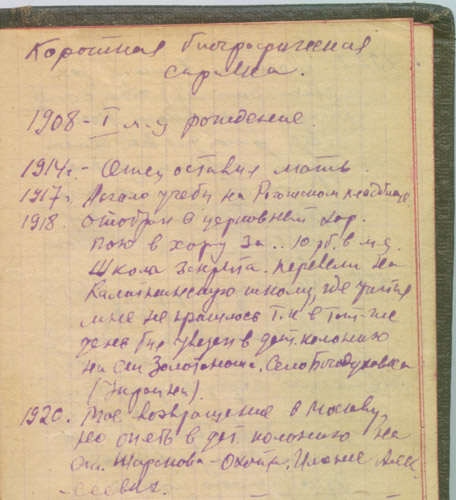 Короткая биографическая
справка.
1908 - I м-ц рождение.
1914г. - Отец оставил мать.
1917г. Начало учебы на Рогожском кладбище
1918. отобран в церковный хор.
пою в хору за .. 10 рб. в м-ц.
Школа закрыта. перевели на
Калитниковскую школу, где учится
мне не пришлось т.к в тот-же
день был увезен в дет. колонию
на ст. Золотоноша. Село Богодуховка
(Украина).
1920. Мое возвращение в Москву,
но опять в дет колонию на
ст. - Охота,